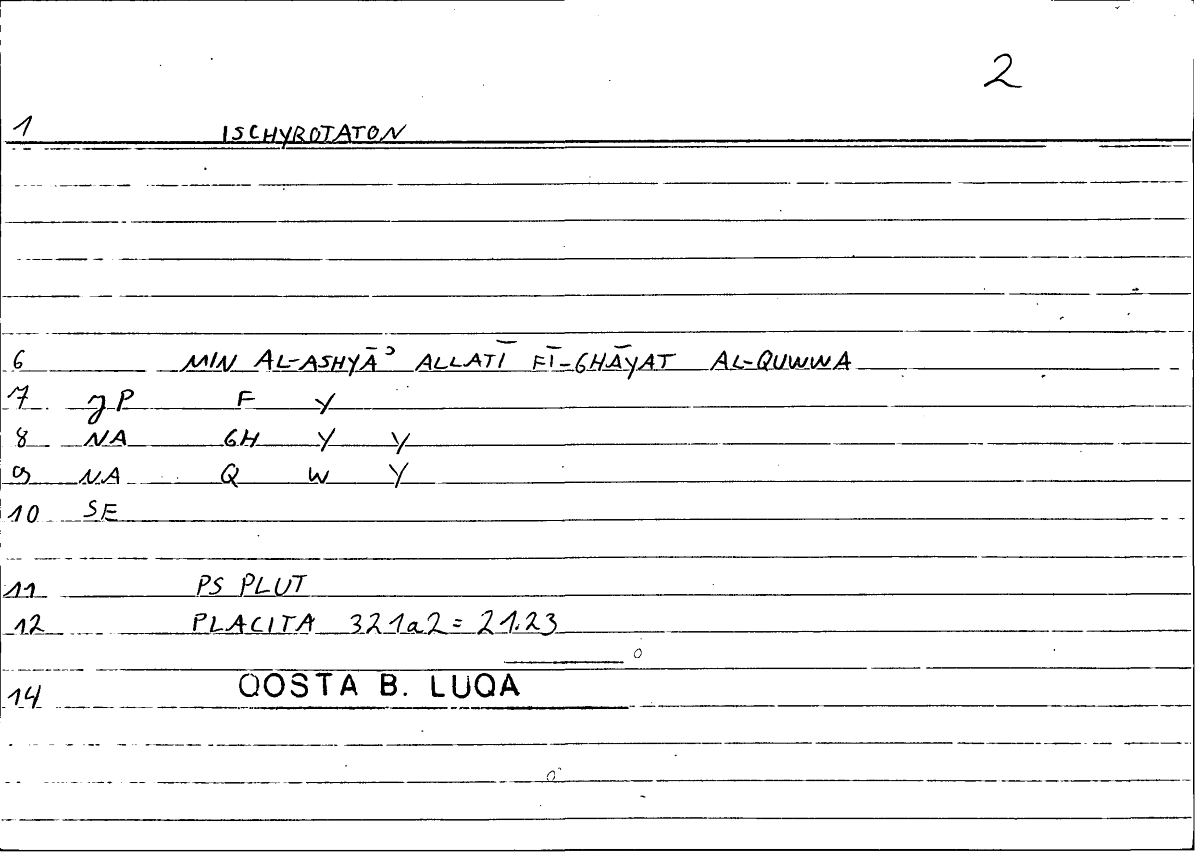 2
1 ISCHYROTATON
6 MIN AL-ASHYĀʾ ALLATĪ FĪ-GHĀYAT AL-QUWWA
7 JP F Y
8 NA GH Y Y
9 NA Q W Y
10 SE
11 PS PLUT
12 PLACITA 321a2 = 21.23
14 QOSTA B. LUQA